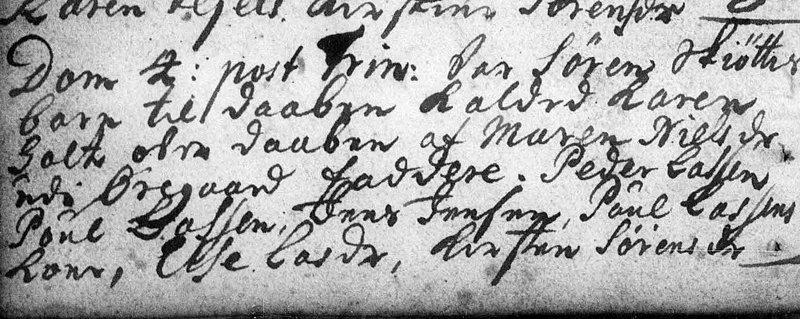 Karen Kirstine Sörensdr
Dom 4: post Trin: var Sören Skiöttes
barn til daaben kalded Karen
holt over daaben af Maren Nielsdr
udi Öregaard faddere. Peder Lassen
Poul Lassen, Jens Jensen, Poul Lassens
kone, Else Lasdr, Kirsten Sörensdr